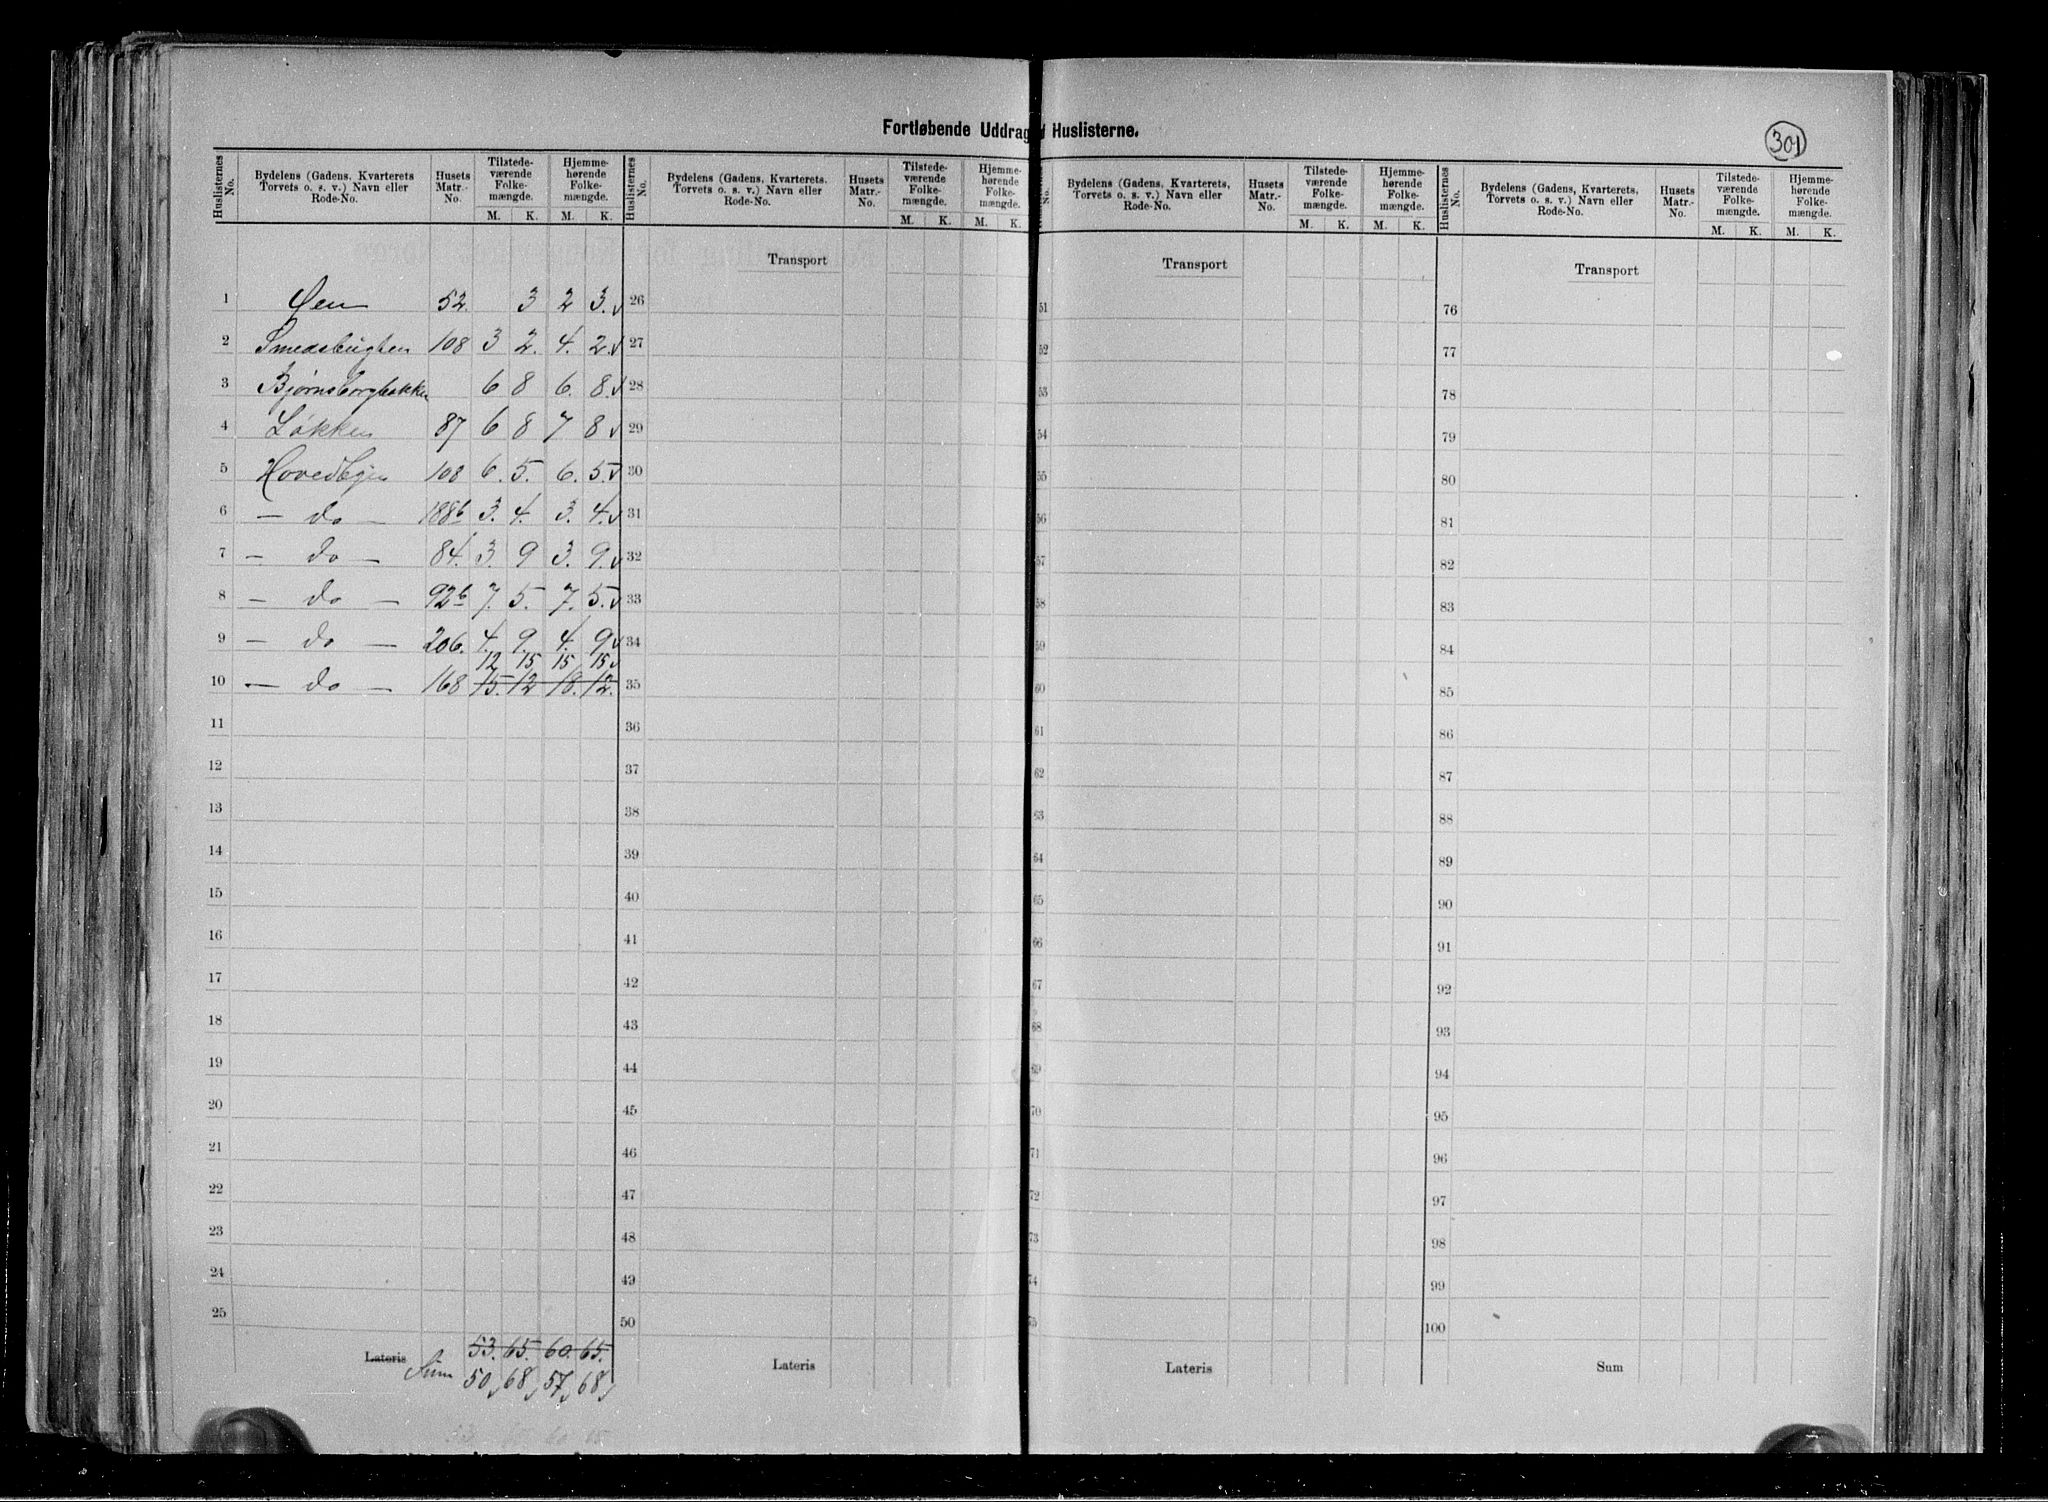 Fortløbende Uddrag af Huslisterne.
301
Huslisternes No. | Bydelens (Gadens, Kvarterets, Torvets o. s. v.) Navn eller Rode-No. | Husets Matr.-No. | Tilstedeværende Folkemængde. M. K. | Hjemmehørende Folkemængde. M. K.
1 Øen 52. 3 2 3. v
2 Smedsbugten 108 3 2. 4. 2. v
3 Bjørnsborgbakken 6 8 6. 8. v
4 Løkken 87 6 8 7 8 v
5 Hovedbyen 108 6. 5. 6. 5. v
6 — do — 188b 3. 4. 3. 4. v
7 — do — 84. 3. 9 3. 9. v
8 — do — 92b 7. 5. 7. 5. v
9 — do — 206. 4. 9. 4. 9 v
12 15 15 15 v
10 — do — 168 15. 12 18. 12.
11
12
13
14
15
16
17
18
19
20
21
22
23
24
25
53. 65. 60. 65.
Lateris Sum 50, 68, 57, 68,
Huslisternes No. | Bydelens (Gadens, Kvarterets. Torvets o. s. v.) Navn eller Rode-No. | Husets Matr.-No. | Tilstedeværende Folkemængde. M. K. | Hjemmehørende Folkemængde. M. K.
Transport
26
27
28
29
30
31
32
33
34
35
36
37
38
39
40
41
42
43
44
45
46
47
48
49
50
Lateris
No. | Bydelens (Gadens, Kvarterets, Torvets o. s. v.) Navn eller Rode-No. | Husets Matr.-No. | Tilstedeværende Folkemængde. M. K. | Hjemmehørende Folkemængde. M. K.
Transport
51
52
53
54
55
56
57
58
59
60
61
62
63
64
65
66
67
68
69
70
71
72
73
74
75
Lateris
Huslisternes No. | Bydelens (Gaden, Kvarterets, Torvets o. s. v.) Navn eller Rode-No. | Husets Matr.-No. | Tilstedeværende Folkemængde. M. K. | Hjemmehørende Folkemængde. M. K.
Transport
76
77
78
79
80
81
82
83
84
85
86
87
88
89
90
91
92
93
94
95
96
97
98
99
100
Sum